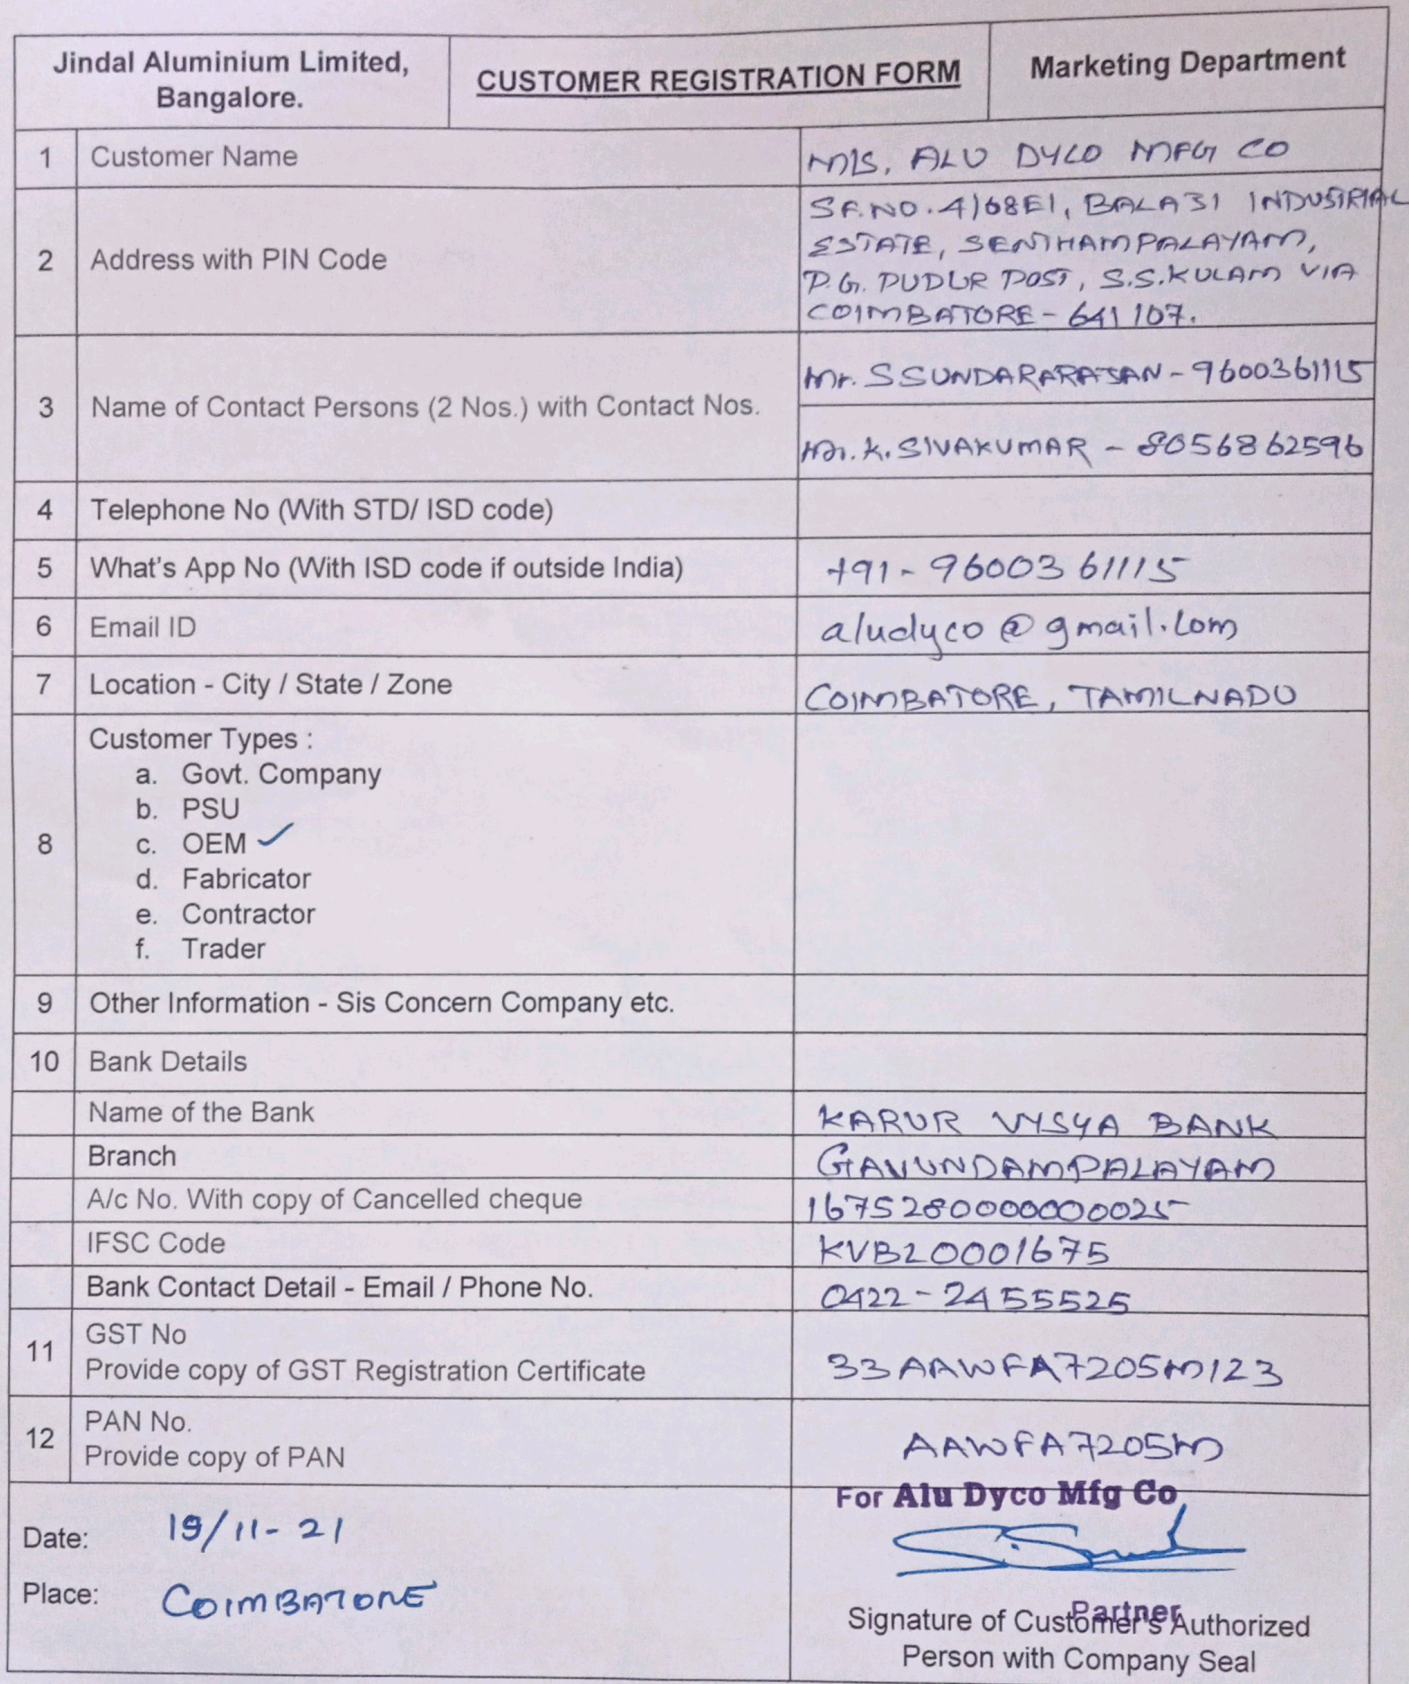 Jindal Aluminium Limited,
Bangalore.
CUSTOMER REGISTRATION FORM
Marketing Department
1 Customer Name
M/S. ALU DYCO MFG CO
2 Address with PIN Code
SF.NO.4/68E1, BALAJI INDUSTRIAL
ESTATE, SENTHAMPALAYAM,
P.G. PUDUR POST, S.S.KULAM VIA
COIMBATORE - 641 107.
3 Name of Contact Persons (2 Nos.) with Contact Nos.
Mr. S SUNDARARAJAN - 9600361115
Mr. K. SIVAKUMAR - 8056862596
4 Telephone No (With STD/ ISD code)
5 What's App No (With ISD code if outside India)
+91 - 96003 61115
6 Email ID
aludyco @ gmail.com
7 Location - City / State / Zone
COIMBATORE, TAMILNADU
8 Customer Types :
a. Govt. Company
b. PSU
c. OEM ✓
d. Fabricator
e. Contractor
f. Trader
9 Other Information - Sis Concern Company etc.
10 Bank Details
Name of the Bank
KARUR VYSYA BANK
Branch
GAVUNDAMPALAYAM
A/c No. With copy of Cancelled cheque
1675280000000025
IFSC Code
KVBL0001675
Bank Contact Detail - Email / Phone No.
0422 - 2455525
11 GST No
Provide copy of GST Registration Certificate
33AAWFA7205M1Z3
12 PAN No.
Provide copy of PAN
AAWFA7205M
For Alu Dyco Mfg Co
Date: 19/11-21
Place: COIMBATORE
Partner
Signature of Customer's Authorized
Person with Company Seal